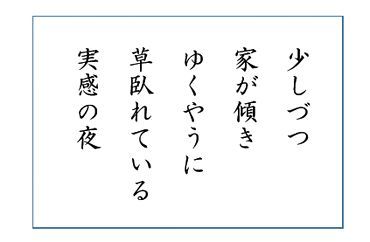 少しづつ
家が傾き
ゆくやうに
草臥れている
実感の夜